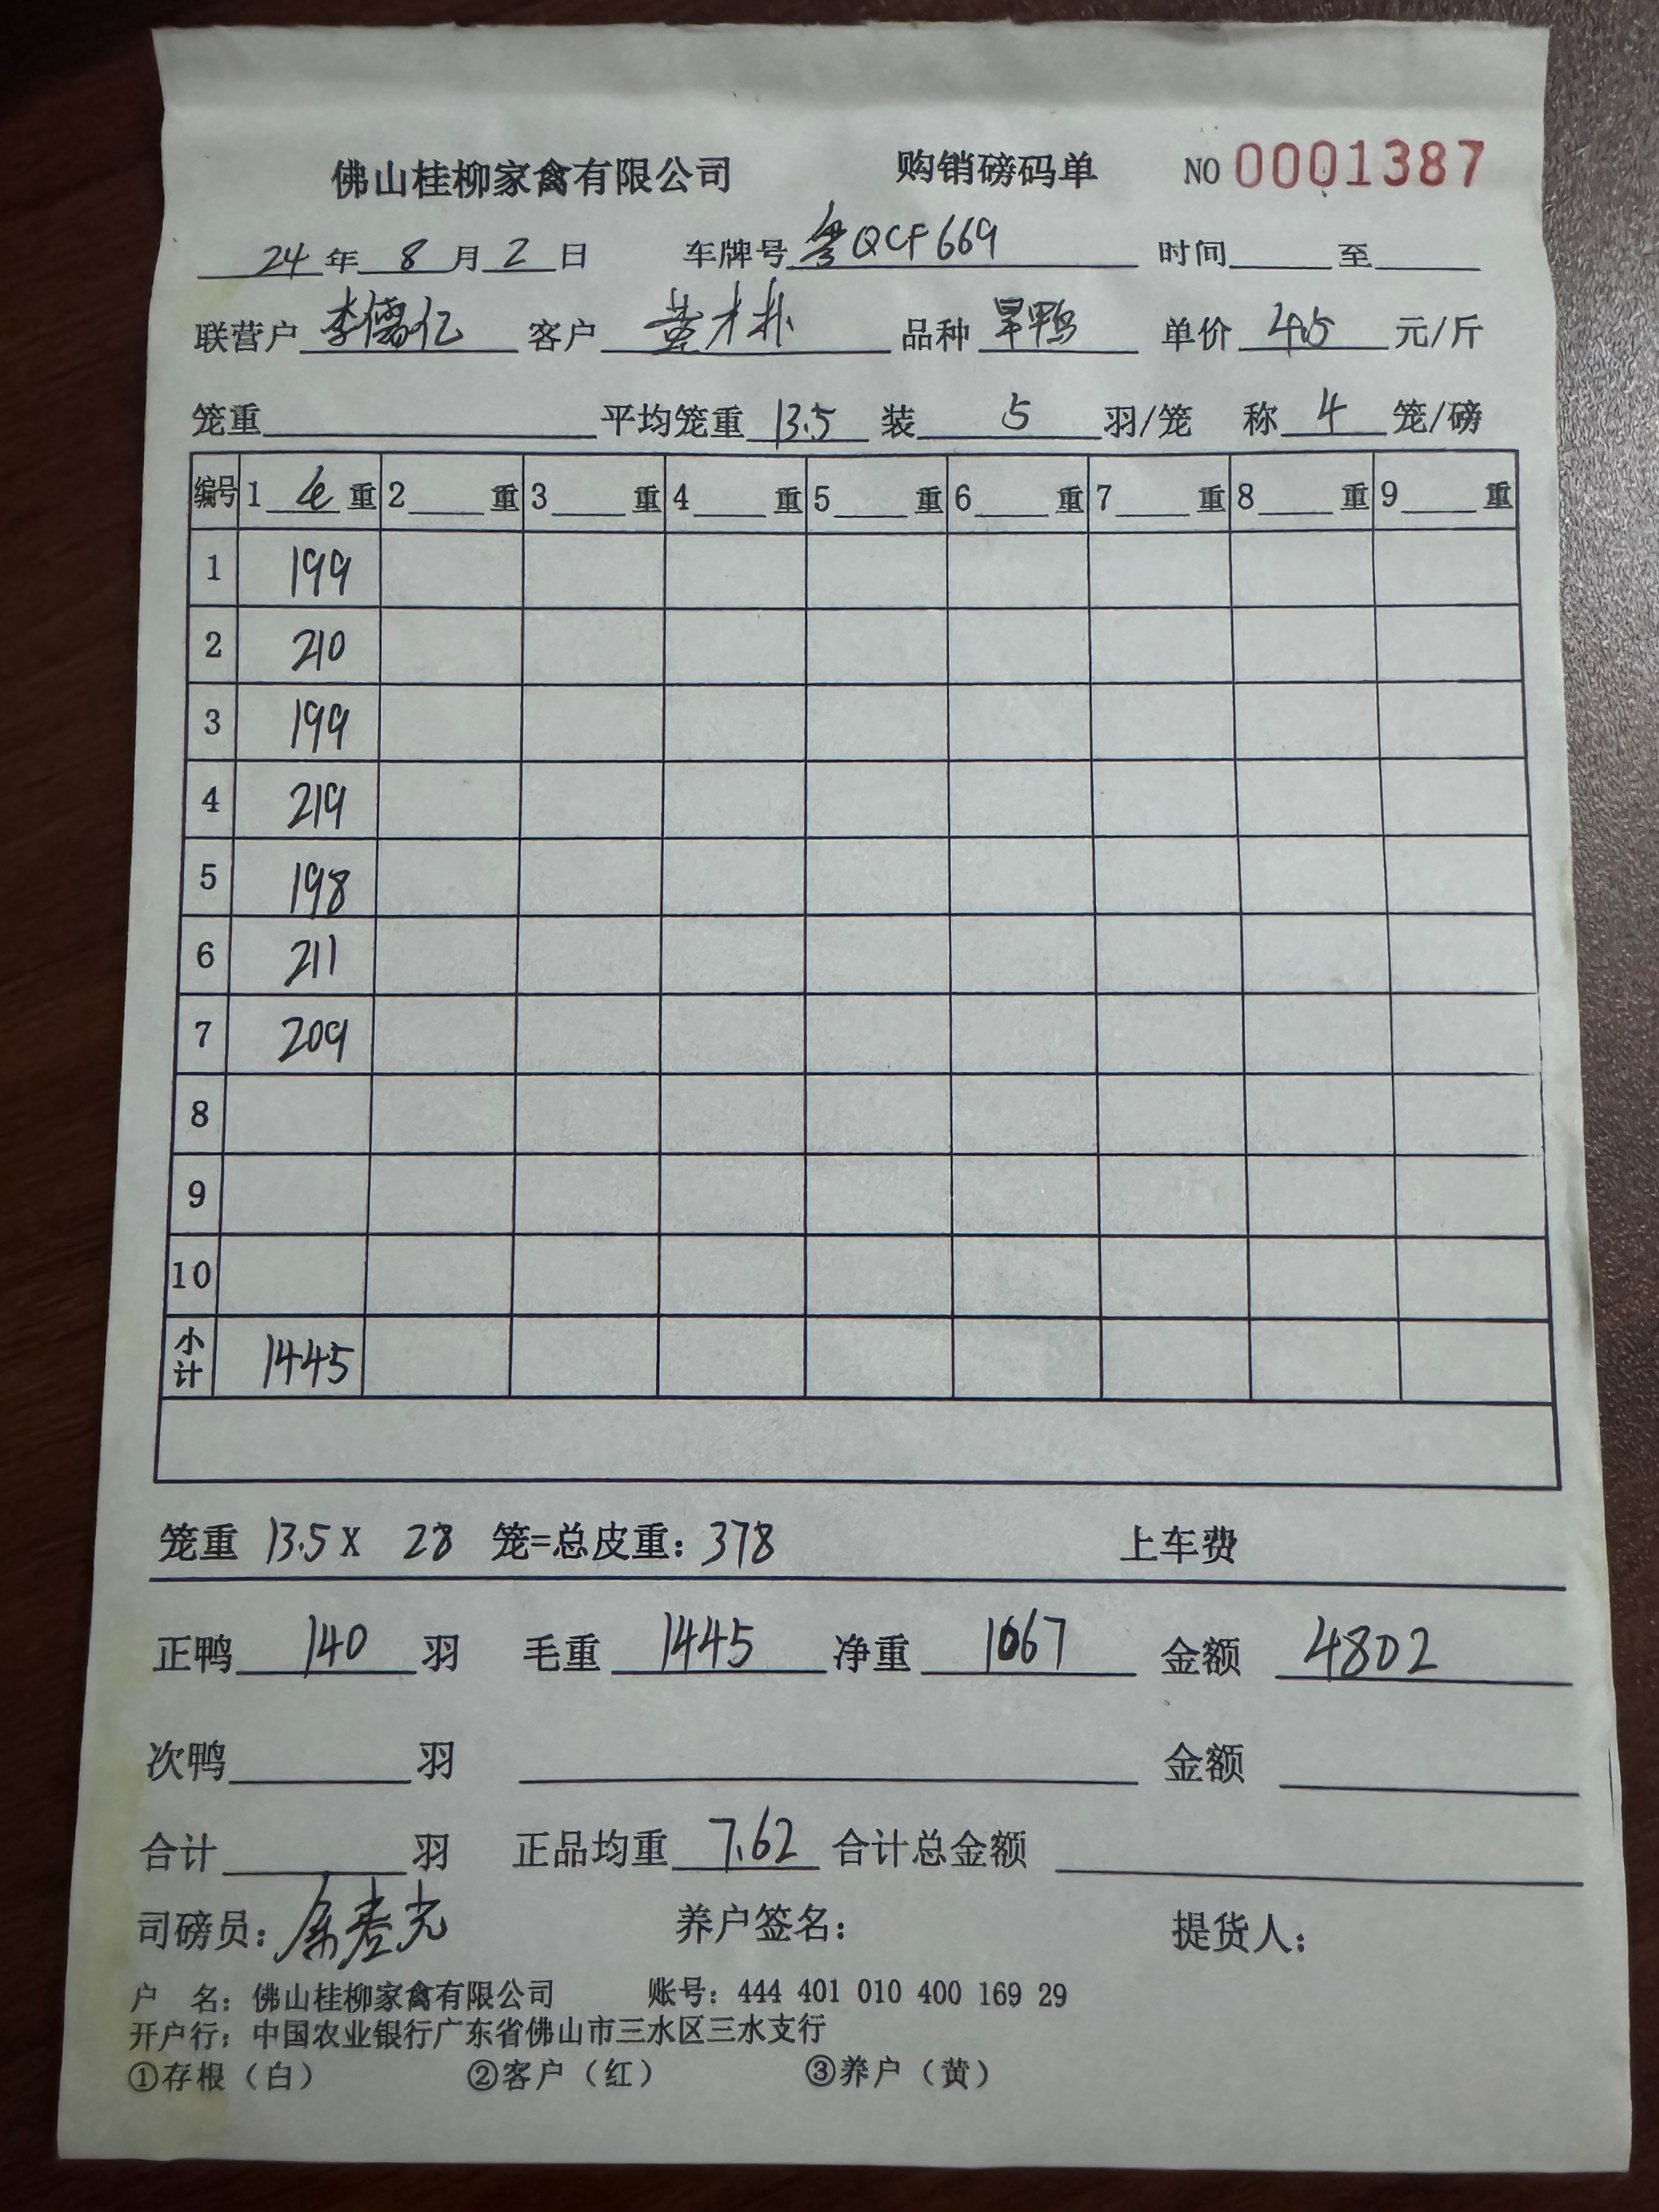 佛山桂柳家禽有限公司 购销磅码单 NO 0001387
24年8月2日 车牌号粤QCF669 时间 至
联营户 李 亿 客户 黄才 品种 旱鸭 单价 4.5 元/斤
笼重 平均笼重 13.5 装 5 羽/笼 称 4 笼/磅
编号 1 重 2 重 3 重 4 重 5 重 6 重 7 重 8 重 9 重
1 199
2 210
3 199
4 219
5 198
6 211
7 209
8
9
10
小计 1445
笼重 13.5 X 28 笼=总皮重：378 上车费
正鸭 140 羽 毛重 1445 净重 1067 金额 4802
次鸭 羽 金额
合计 羽 正品均重 7.62 合计总金额
司磅员： 养户签名： 提货人：
户 名：佛山桂柳家禽有限公司 账号：444 401 010 400 169 29
开户行：中国农业银行广东省佛山市三水区三水支行
①存根（白） ②客户（红） ③养户（黄）